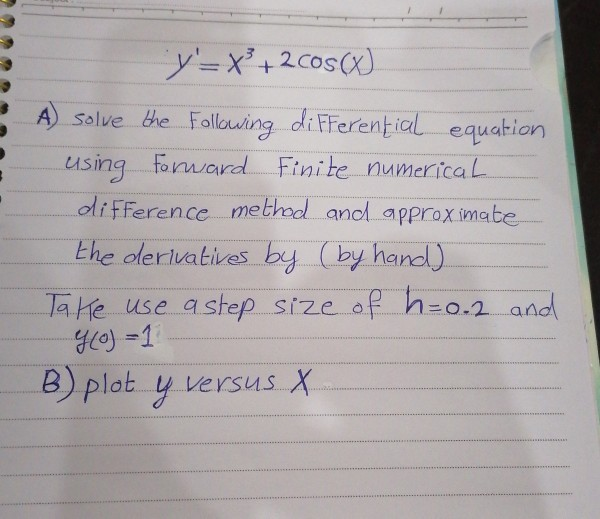 y' = x³ + 2cos(x)
A) solve the Following differential equation
using forward Finite numerical
difference method and approximate
the derivatives by (by hand)
Take use a step size of h=0.2 and
y(0) =1
B) plot y versus X